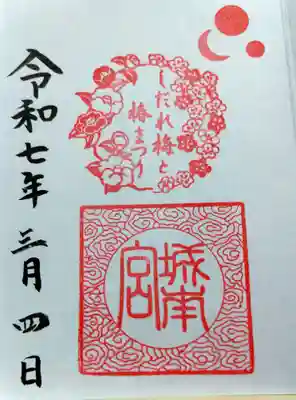 しだれ梅と
椿まつり
城南
宮
令和七年三月四日